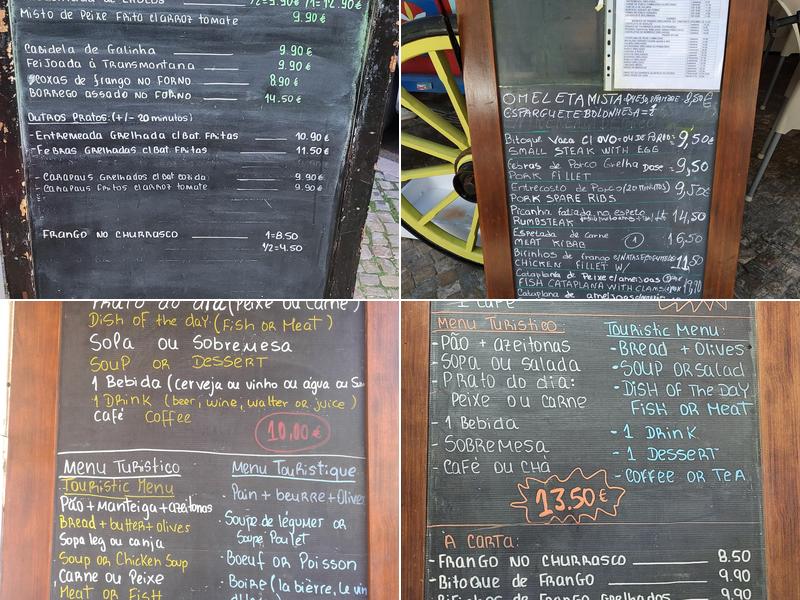 Misto de Peixe Frito c/arroz tomate 9.90€
Cabidela de Galinha 9.90€
Feijoada à Transmontana 9.90€
coxas de frango no forno 8.90€
Borrego assado no forno 14.50€
Outros Pratos: (+/- 20 minutos)
-Entremeada Grelhada c/Bat. Fritas 10.90€
-Febras Grelhadas c/Bat. Fritas 11.50€
-Carapaus Grelhados c/Bat cozida 9.90€
-Carapaus Fritos c/arroz tomate 9.90€
Frango no Churrasco 1=8.50
1/2=4.50
OMELETA MISTA 8,50€
ESPARGUETE BOLONHESA=
Bitoque Vaca C/ OVO=ou de Porco= 9,50€
SMALL STEAK WITH EGG
Febras de Porco Grelha Dose = 9,50
PORK FILLET
Entrecosto de Porco (20 minutos) 9,50€
PORK SPARE RIBS
Picanha fatiada no espeto 14,50
RUMBSTEAK
Espetada de carne 1 16,50
MEAT KIBAB
Birinhos de frango
CHICKEN FILLET W/ 11,50
Cataplana de Peixe e/ameijoas
FISH CATAPLANA WITH CLAMS
Cataplana de ameijoas
Prato do dia (Peixe ou Carne)
Dish of the day (Fish or Meat)
Sopa ou Sobremesa
Soup or Dessert
1 Bebida (cerveja ou vinho ou água ou Su
1 Drink (beer, wine, walter or juice)
Café Coffee
10,00€
Menu Turistico
Touristic Menu
Pão + Manteiga + azeitonas
Bread + butter + olives
Sopa leg ou canja
Soup or Chicken Soup
Carne ou Peixe
Meat or Fish
Menu Touristique
Pain + beurre + Olive
· Soupe de légumer or
Soupe Poulet
· Boeuf or Poisson
· Boire (la bièrre, le vin
1 Café
Menu Turistico:
- Pão + azeitonas
- Sopa ou salada
- Prato do dia:
Peixe ou carne
- 1 Bebida
- Sobremesa
- Café ou chá
Touristic Menu:
- Bread + Olives
- Soup or Salad
- Dish of the Day
Fish or Meat
- 1 Drink
- 1 Dessert
- Coffee or Tea
13.50€
À Carta:
- Frango no churrasco 8.50
- Bitoque de Frango 9.90
- Birinhos de Frango Grelhados 9.90